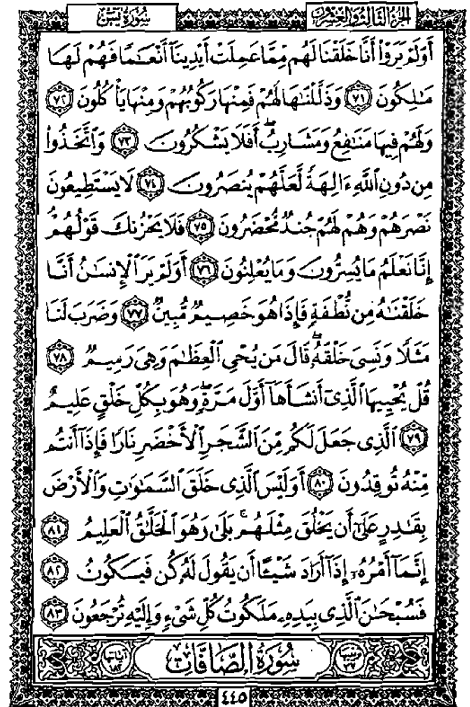 سُورَةُ يسٓ
الجُزْءُ الثَّالِثُ وَالعِشْرُونَ
أَوَلَمْ يَرَوْا۟ أَنَّا خَلَقْنَا لَهُم مِّمَّا عَمِلَتْ أَيْدِينَآ أَنْعَٰمًا فَهُمْ لَهَا
مَٰلِكُونَ ٧١ وَذَلَّلْنَٰهَا لَهُمْ فَمِنْهَا رَكُوبُهُمْ وَمِنْهَا يَأْكُلُونَ ٧٢
وَلَهُمْ فِيهَا مَنَٰفِعُ وَمَشَارِبُ ۖ أَفَلَا يَشْكُرُونَ ٧٣ وَٱتَّخَذُوا۟
مِن دُونِ ٱللَّهِ ءَالِهَةً لَّعَلَّهُمْ يُنصَرُونَ ٧٤ لَا يَسْتَطِيعُونَ
نَصْرَهُمْ وَهُمْ لَهُمْ جُندٌ مُّحْضَرُونَ ٧٥ فَلَا يَحْزُنكَ قَوْلُهُمْ ۘ
إِنَّا نَعْلَمُ مَا يُسِرُّونَ وَمَا يُعْلِنُونَ ٧٦ أَوَلَمْ يَرَ ٱلْإِنسَٰنُ أَنَّا
خَلَقْنَٰهُ مِن نُّطْفَةٍ فَإِذَا هُوَ خَصِيمٌ مُّبِينٌ ٧٧ وَضَرَبَ لَنَا
مَثَلًا وَنَسِىَ خَلْقَهُۥ ۖ قَالَ مَن يُحْىِ ٱلْعِظَٰمَ وَهِىَ رَمِيمٌ ٧٨
قُلْ يُحْيِيهَا ٱلَّذِىٓ أَنشَأَهَآ أَوَّلَ مَرَّةٍ ۖ وَهُوَ بِكُلِّ خَلْقٍ عَلِيمٌ
٧٩ ٱلَّذِى جَعَلَ لَكُم مِّنَ ٱلشَّجَرِ ٱلْأَخْضَرِ نَارًا فَإِذَآ أَنتُم
مِّنْهُ تُوقِدُونَ ٨٠ أَوَلَيْسَ ٱلَّذِى خَلَقَ ٱلسَّمَٰوَٰتِ وَٱلْأَرْضَ
بِقَٰدِرٍ عَلَىٰٓ أَن يَخْلُقَ مِثْلَهُم ۚ بَلَىٰ وَهُوَ ٱلْخَلَّٰقُ ٱلْعَلِيمُ ٨١
إِنَّمَآ أَمْرُهُۥٓ إِذَآ أَرَادَ شَيْـًٔا أَن يَقُولَ لَهُۥ كُن فَيَكُونُ ٨٢
فَسُبْحَٰنَ ٱلَّذِى بِيَدِهِۦ مَلَكُوتُ كُلِّ شَىْءٍ وَإِلَيْهِ تُرْجَعُونَ ٨٣
سُورَةُ الصَّافَّاتِ
٤٤٥